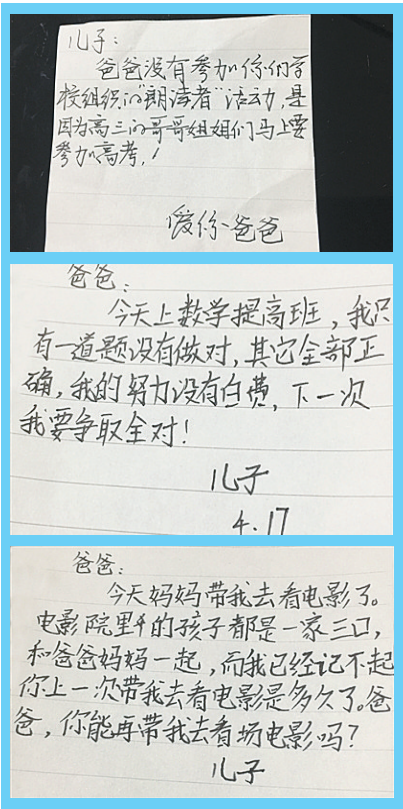 儿子：
爸爸没有参加你们学
校组织的"朗读者"活动，是
因为高三的哥哥姐姐们马上要
参加高考，！
爱你爸爸
爸爸：
今天上数学提高班，我只
有一道题没有做对，其它全部正
确，我的努力没有白费，下一次
我要争取全对！
儿子
4.17
爸爸：
今天妈妈带我去看电影了。
电影院里的孩子都是一家三口，
和爸爸妈妈一起，而我已经记不起
你上一次带我去看电影是多久了。爸
爸，你能再带我去看场电影吗？
儿子